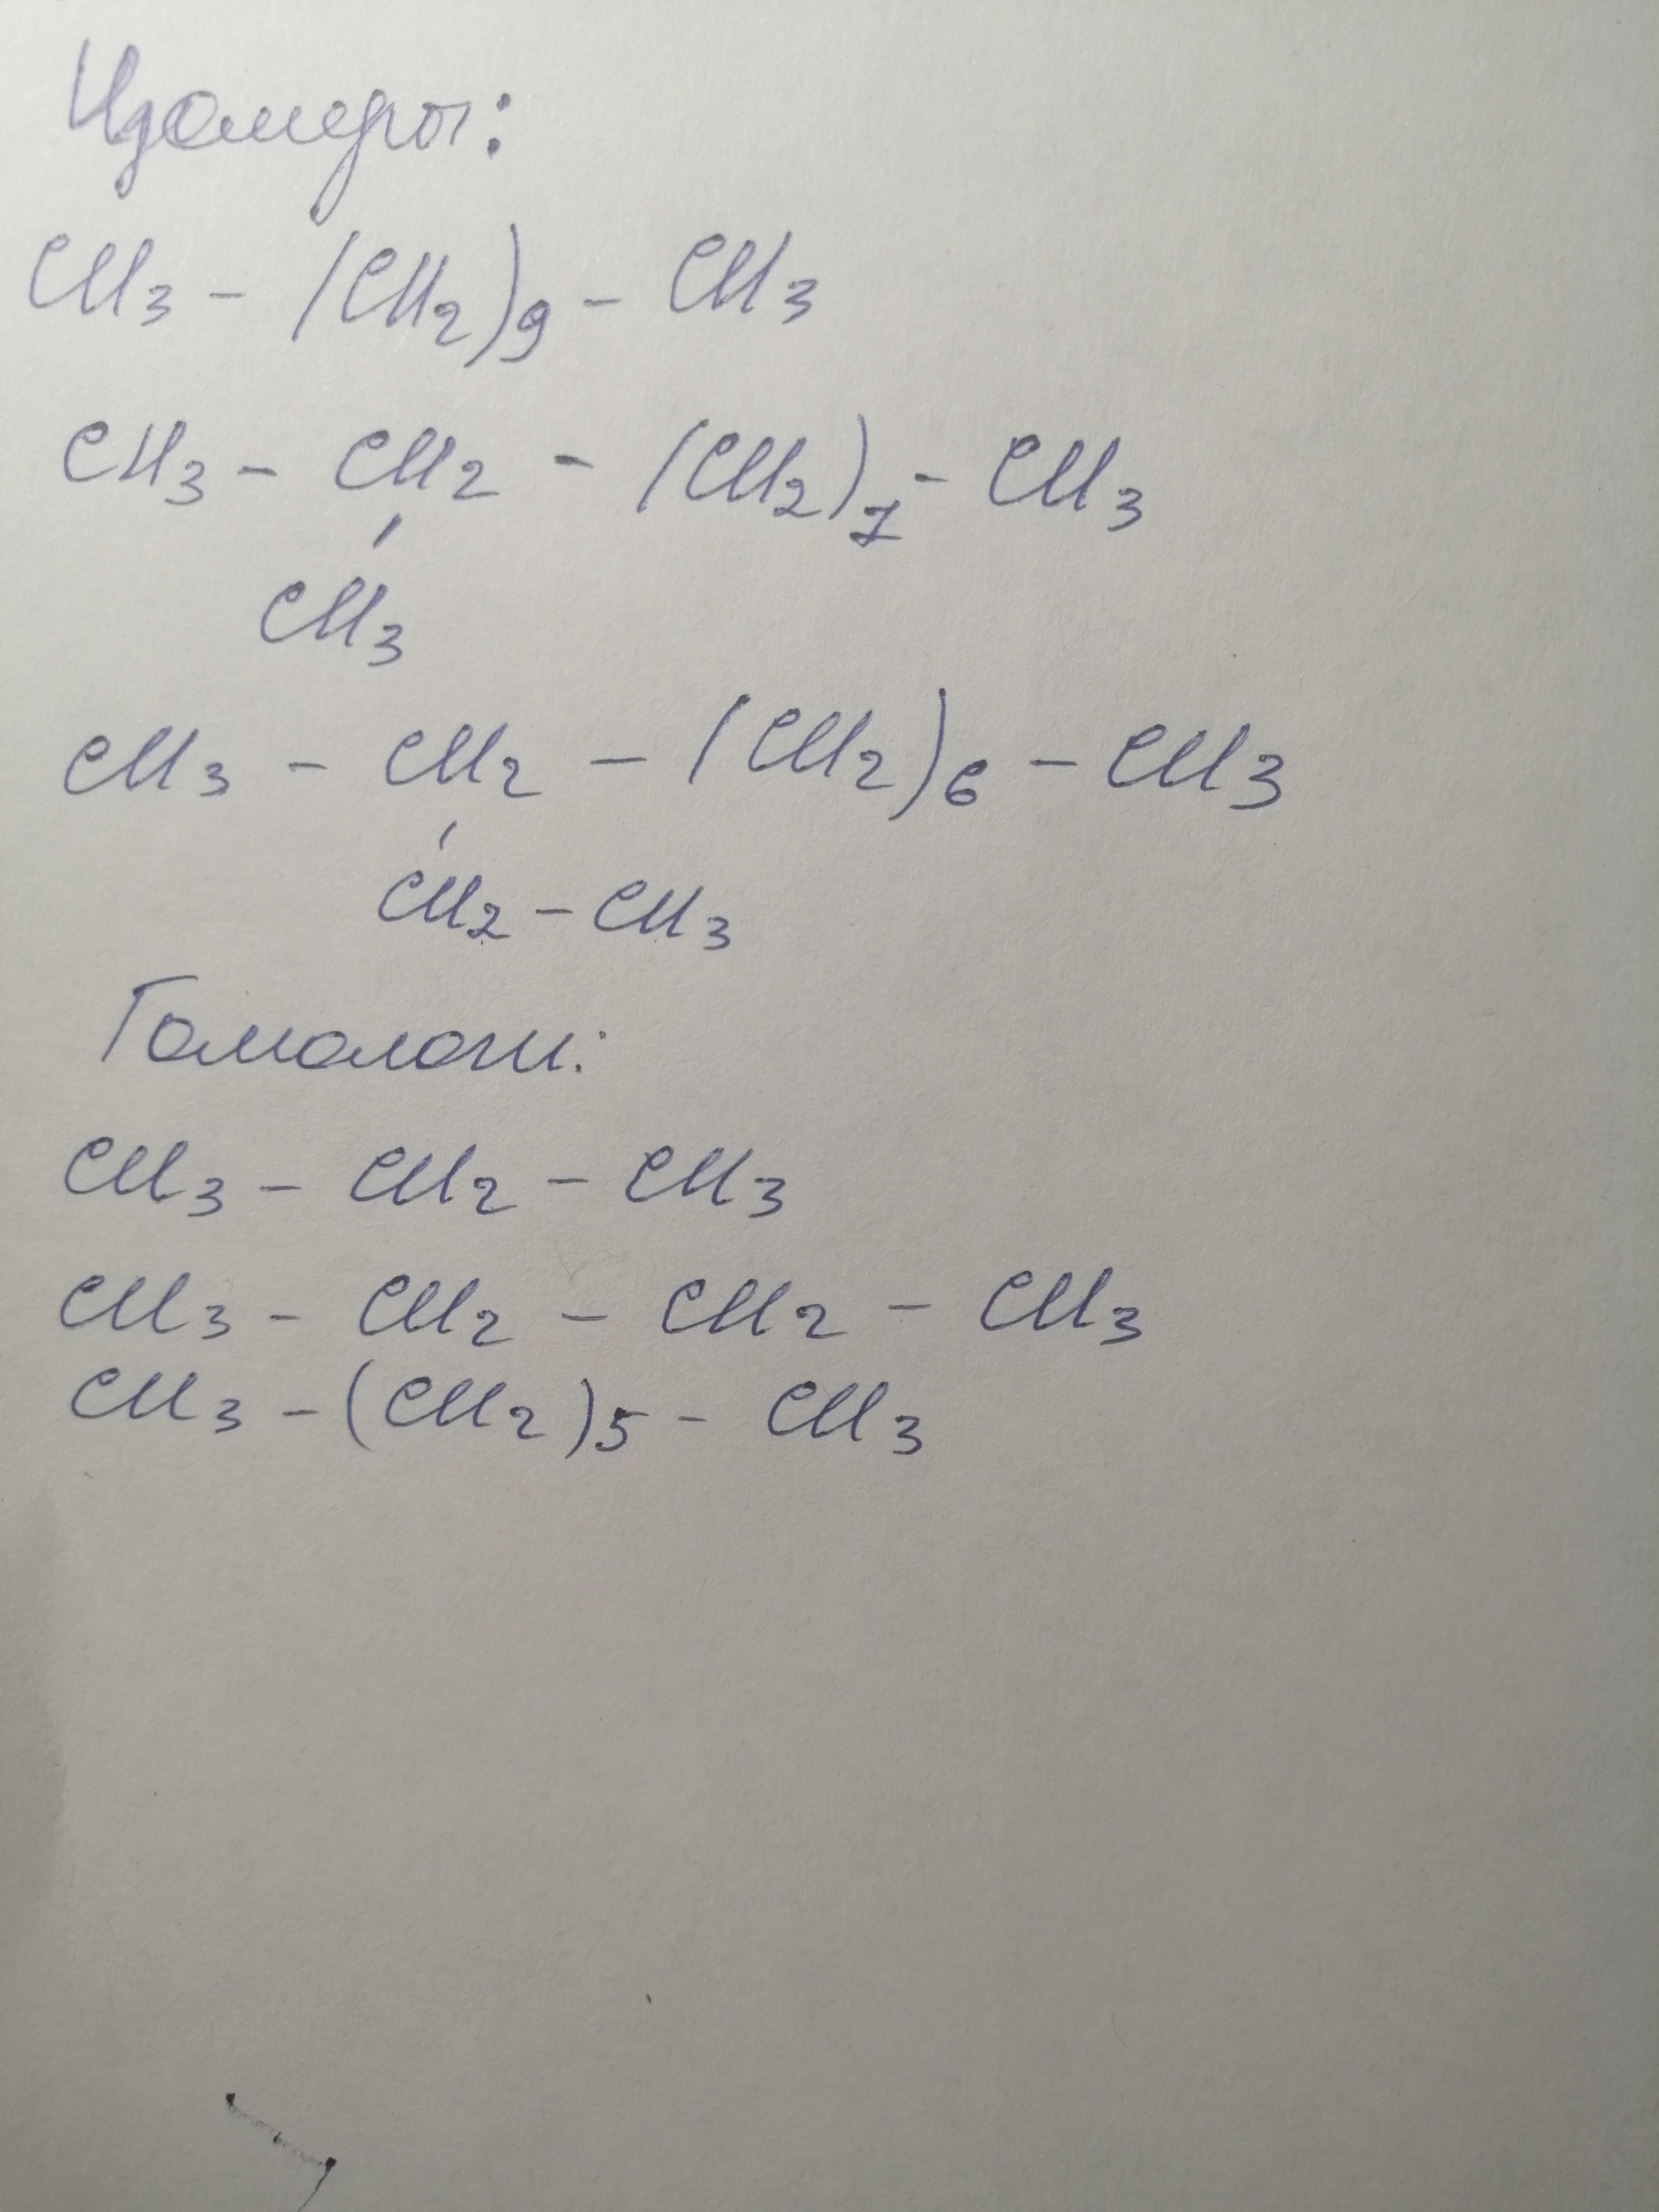 Изомеры:
CH3 - (CH2)9 - CH3
CH3 - CH2 - (CH2)7 - CH3
CH3
CH3 - CH2 - (CH2)6 - CH3
CH2 - CH3
Гомологи:
CH3 - CH2 - CH3
CH3 - CH2 - CH2 - CH3
CH3 - (CH2)5 - CH3